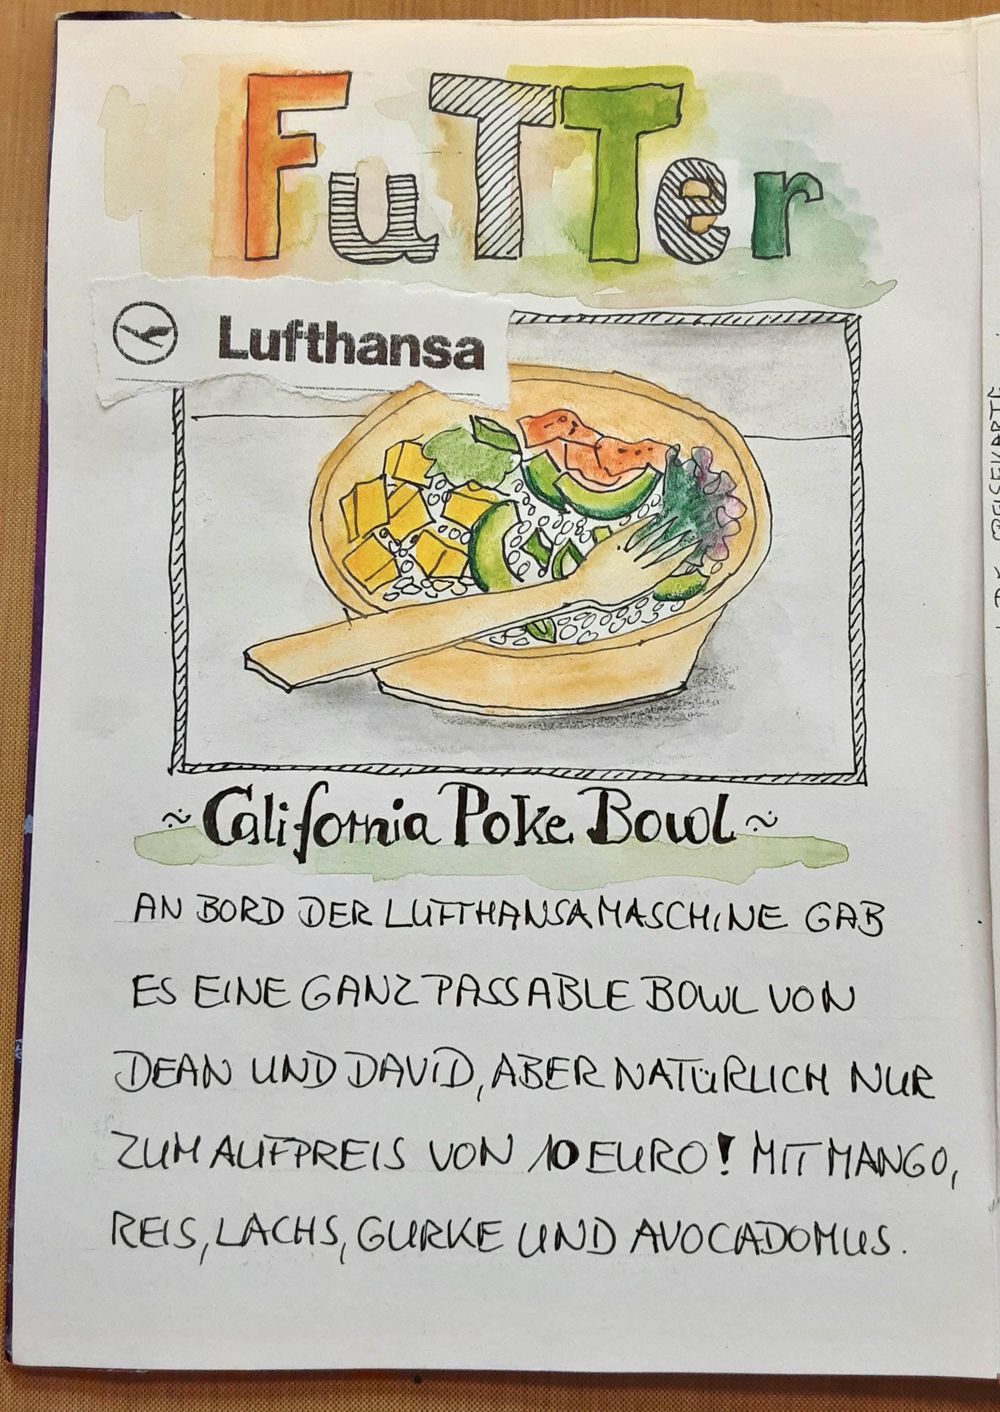 FuTTer
Lufthansa
~ California Poke Bowl ~
AN BORD DER LUFTHANSAMASCHINE GAB
ES EINE GANZ PASSABLE BOWL VON
DEAN UND DAVID, ABER NATÜRLICH NUR
ZUM AUFPREIS VON 10 EURO! MIT MANGO,
REIS, LACHS, GURKE UND AVOCADOMUS.